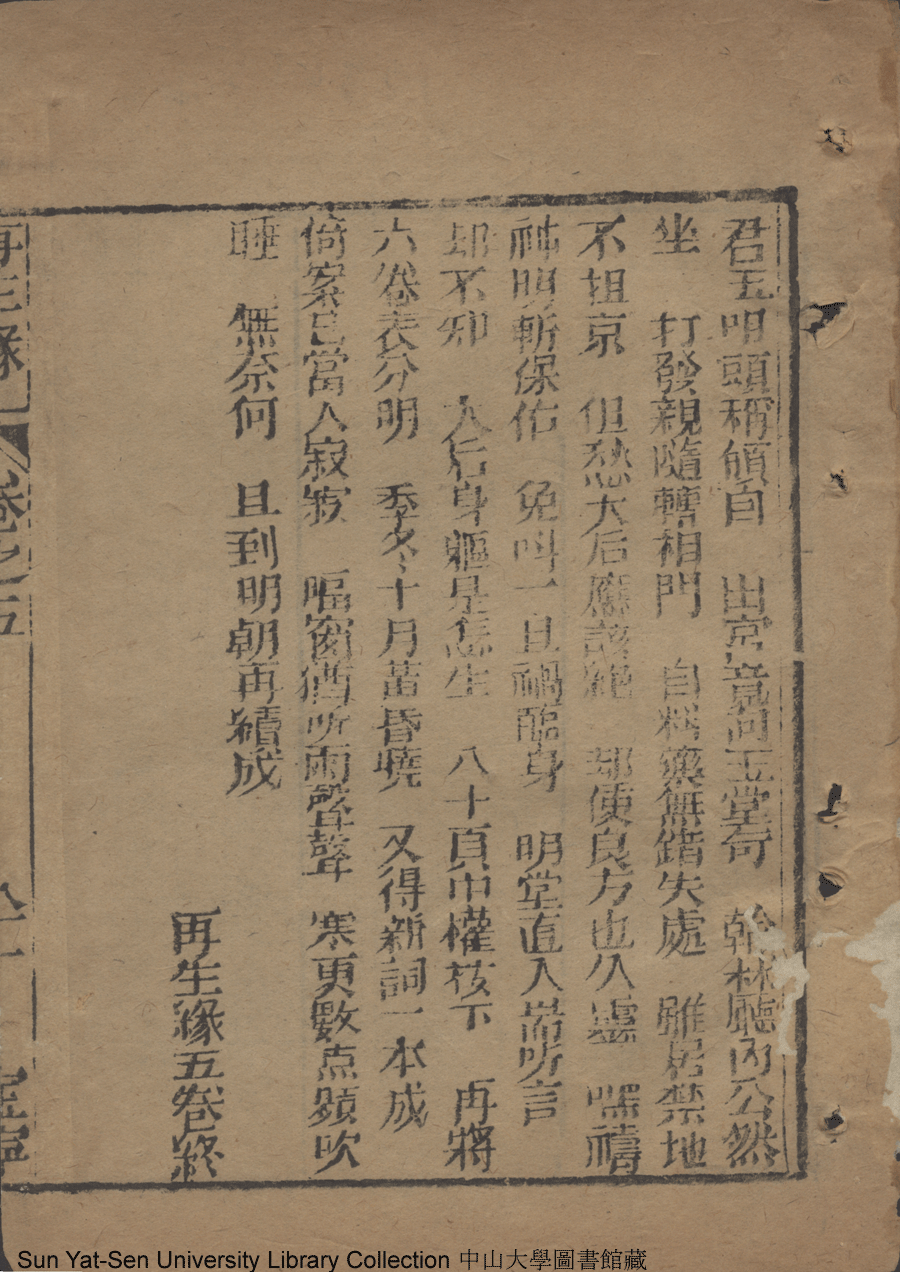 君玉明頭稱領自　出宮竟問玉堂奇　翰林廳內公然
坐　打發親隨轉相門　自料藥無錯失處　雖居禁地
不担京　但愁大后應該絕　却使良方也仏霊　嘿禱
神明斬保佑　免叫一旦禍臨身　明堂直入耑听言
却不卯　太后身軀是怎生　八十頁中權核下　再將
六卷表分明　季冬十月苗昏曉　又得新詞一本成
倚案已當人寂寂　臨窗猶听雨聲聲　寒更數点頻吹
睡　無奈何　且到明朝再續成
再生緣五卷終
再生緣　卷之五
Sun Yat-Sen University Library Collection 中山大學圖書館藏